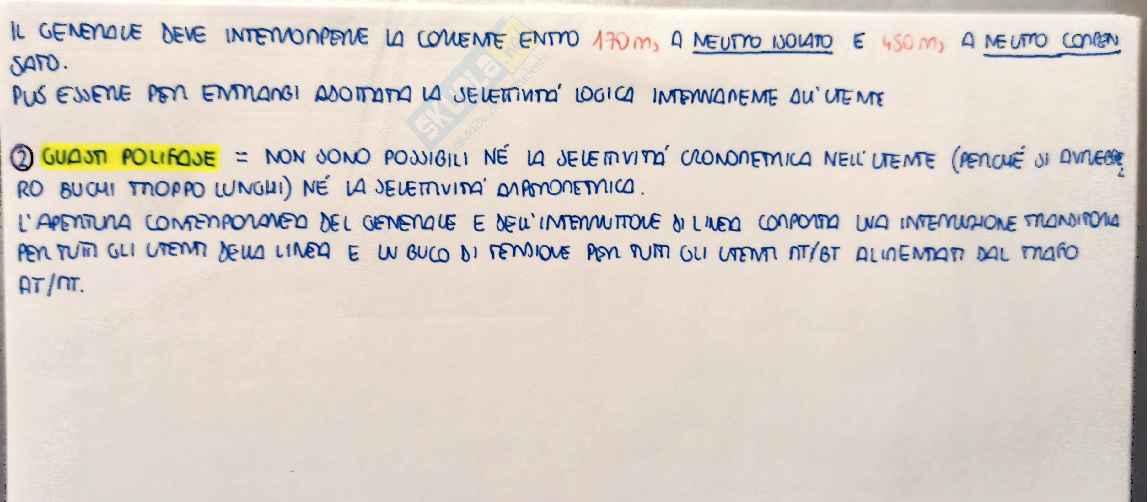 IL GENERALE DEVE INTERROMPERE LA CORRENTE ENTRO 170 ms A NEUTRO ISOLATO E 450 ms A NEUTRO COMPEN
SATO.
PUÒ ESSERE PER ENTRAMBI ADOTTATA LA SELETTIVITÀ LOGICA INTERNAMENTE ALL'UTENTE
② GUASTI POLIFASE = NON SONO POSSIBILI NÉ LA SELETTIVITÀ CRONOMETRICA NELL'UTENTE (PERCHÉ SI AVREBBE
RO BUCHI TROPPO LUNGHI) NÉ LA SELETTIVITÀ AMPEROMETRICA.
L'APERTURA CONTEMPORANEA DEL GENERALE E DELL'INTERRUTTORE DI LINEA COMPORTA UNA INTERRUZIONE TRANSITORIA
PER TUTTI GLI UTENTI DELLA LINEA E UN BUCO DI TENSIONE PER TUTTI GLI UTENTI MT/BT ALIMENTATI DAL TRAFO
AT/MT.
skuola